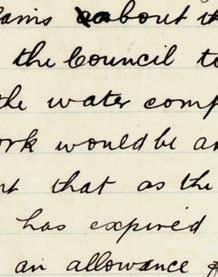 about
the Council to
the water comp
ork would be a
nt that as the
has expired
an allowance